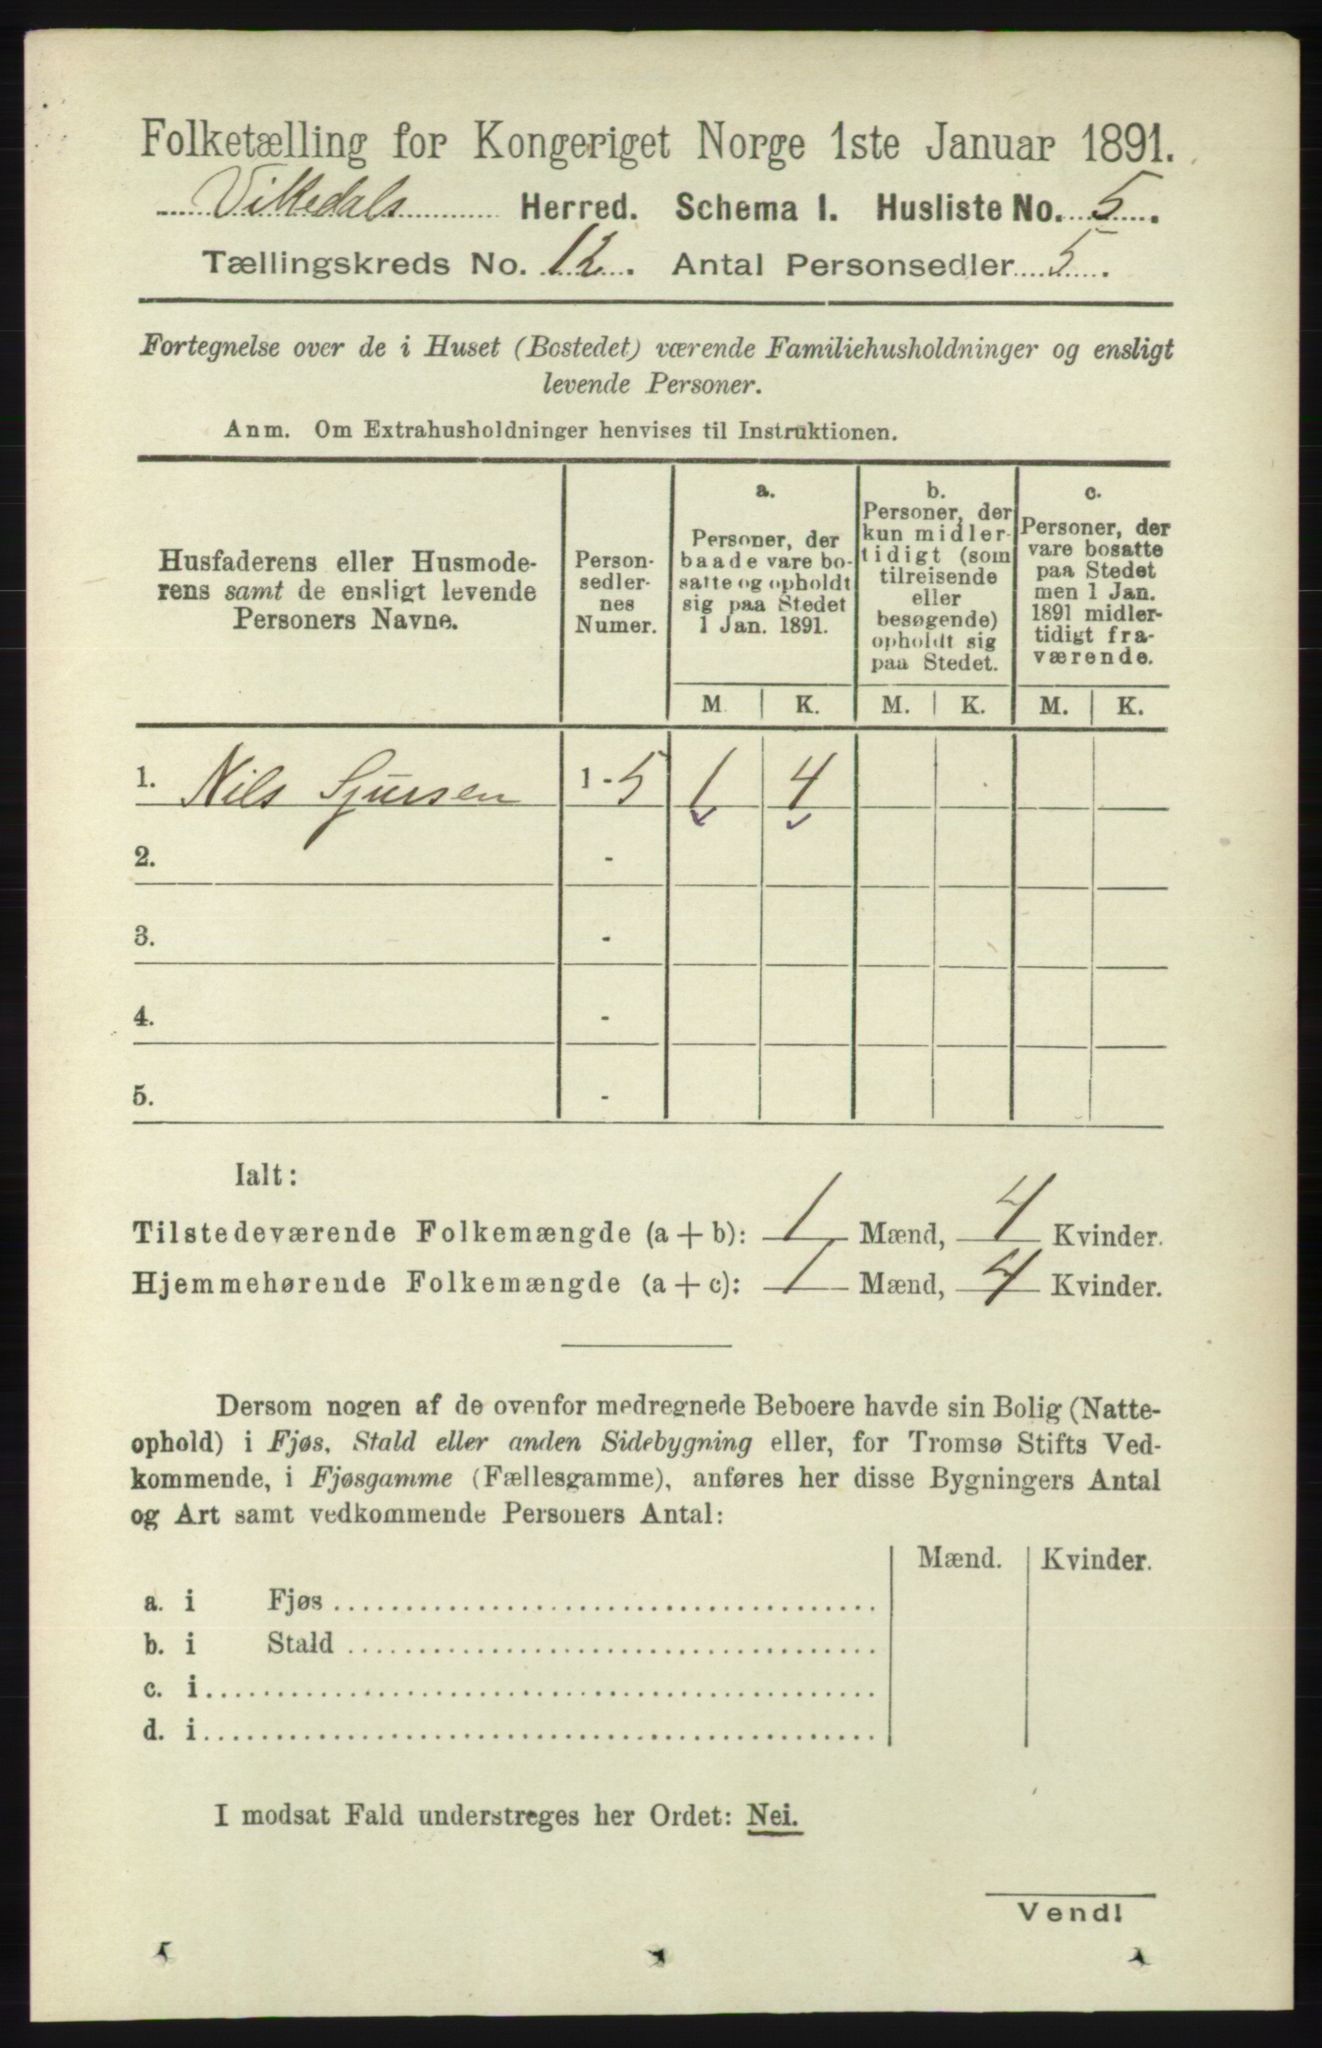 Folketælling for Kongeriget Norge 1ste Januar 1891.
Vikedals Herred. Schema I. Husliste No. 5.
Tællingskreds No. 12. Antal Personsedler 5.
Fortegnelse over de i Huset (Bostedet) værende Familiehusholdninger og ensligt
levende Personer.
Anm. Om Extrahusholdninger henvises til Instruktionen.
Husfaderens eller Husmode-
rens samt de ensligt levende
Personers Navne.
Person-
sedler-
nes
Numer.
a.
Personer, der
baade vare bo-
satte og opholdt
sig paa Stedet
1 Jan. 1891.
M. K.
b.
Personer, der
kun midler-
tidigt (som
tilreisende
eller
besøgende)
opholdt sig
paa Stedet.
M. K.
c.
Personer, der
vare bosatte
paa Stedet
men 1 Jan.
1891 midler-
tidigt fra-
værende.
M. K.
1. Nils Sjursen 1-5 1 4
2. -
3. -
4. -
5. -
Ialt:
Tilstedeværende Folkemængde (a + b): 1 Mænd, 4 Kvinder.
Hjemmehørende Folkemængde (a + c): 1 Mænd, 4 Kvinder.
Dersom nogen af de ovenfor medregnede Beboere havde sin Bolig (Natte-
ophold) i Fjøs, Stald eller anden Sidebygning eller, for Tromsø Stifts Ved-
kommende, i Fjøsgamme (Fællesgamme), anføres her disse Bygningers Antal
og Art samt vedkommende Personers Antal:
Mænd. Kvinder.
a. i Fjøs
b. i Stald
c. i
d. i
I modsat Fald understreges her Ordet: Nei.
Vend!